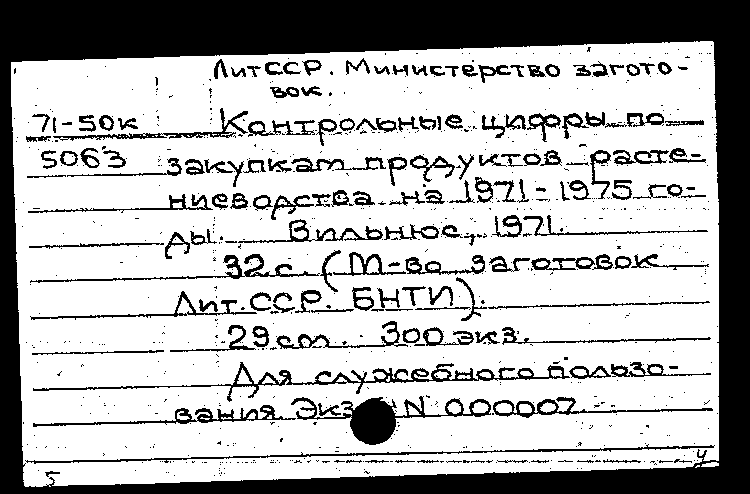 ЛитССР. Министерство загото-
вок.
71-50к Контрольные цифры по
5063 закупкам продуктов расте-
ниеводства на 1971-1975 го-
ды. Вильнюс, 1971.
32с. (М-во заготовок
Лит.ССР. БНТИ).
29см. 300 экз.
Для служебного пользо-
вания. Экз. N 000007.
5 у